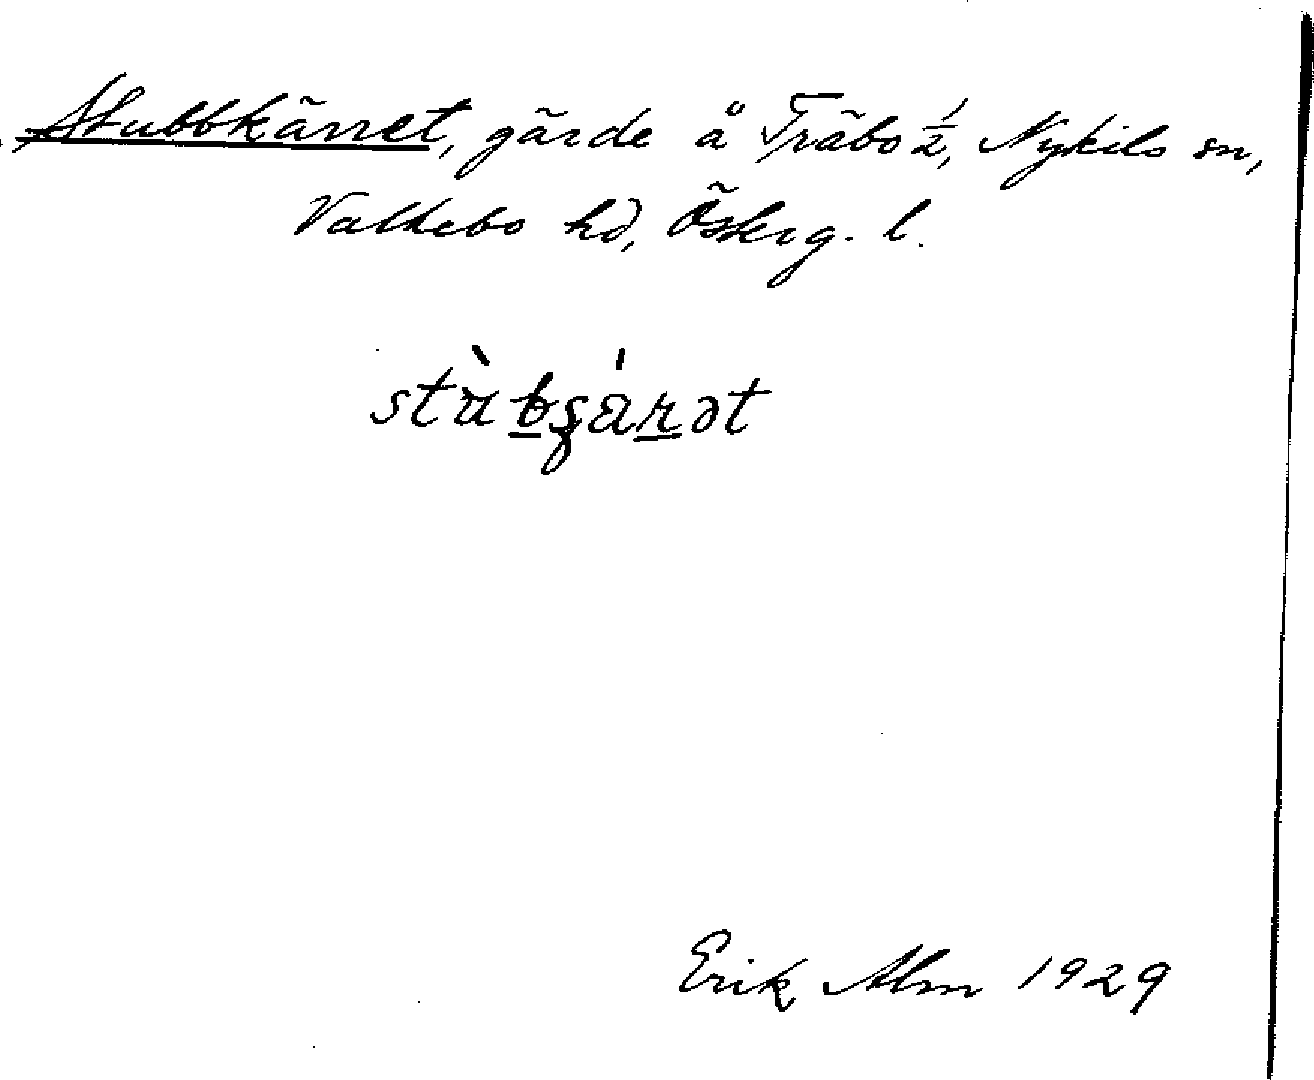 Stubbkärret, gärde å Träbo ½, Nykils sn,
Valkebo hd, Österg. l.
Erik Alm 1929